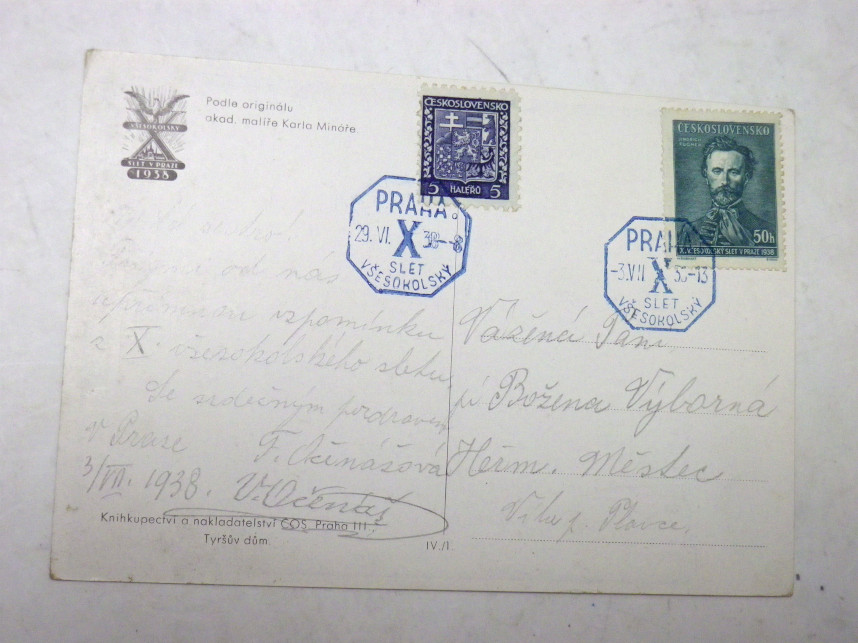 Podle originálu
akad. malíře Karla Mináře.
VŠESOKOLSKÝ
X
SLET V PRAZE
1938
ČESKOSLOVENSKO
5 HALÉŘŮ 5
ČESKOSLOVENSKO
50h
X. VŠESOKOLSKÝ SLET V PRAZE 1938
PRAHA
29. VI. X 38 -8
SLET
VŠESOKOLSKÝ
PRAHA
-3.VII X 38-13
SLET
VŠESOKOLSKÝ
od nás
upřímnou vzpomínku
z X. všesokolského sletu
Se srdečným pozdravem
v Praze F. Očenášová
3/VII. 1938. V. Očenáš
Knihkupectví a nakladatelství ČOS, Praha III.
Tyršův dům.
IV./I.
Vážená Paní
Božena Výborná
Heřm. Městec
Vila p.